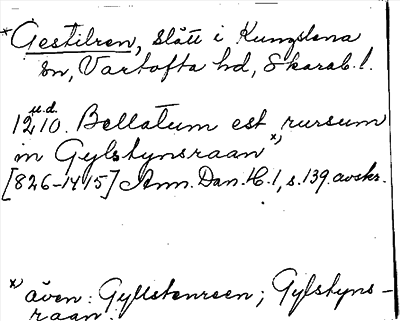 *Gestilren, slätt i Kungslena
sn, Vartofta hd, Skarab. l.
u.d.
1210. Bellatum est rursum
in Gylstynsraan x)
[826-1415] Ann. Dan. H. 1, s. 139. avskr.
x) även: Gyllstenreen; Gylstyns-
raan.